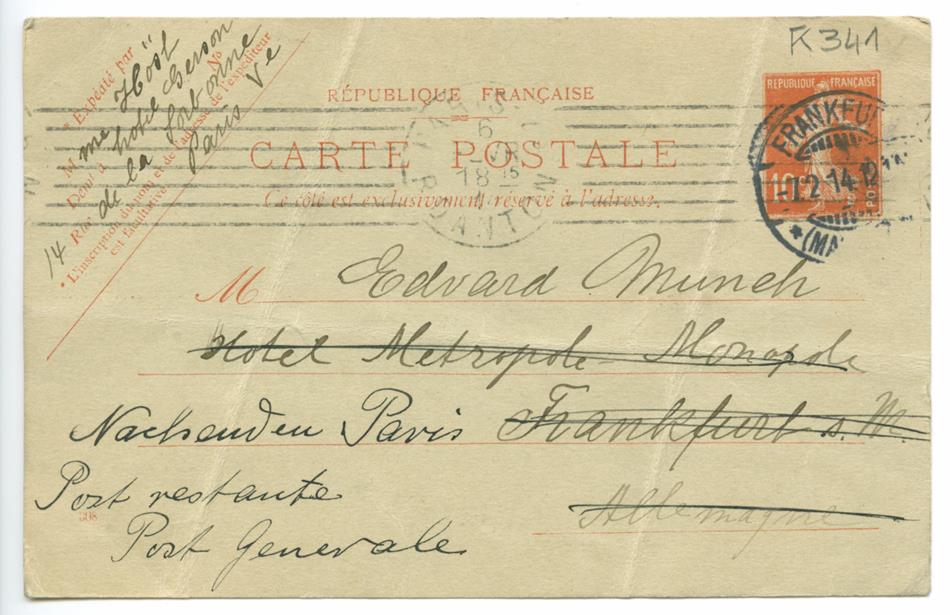 K 341
* Expédié par
Mme Höst
Demt à hotel Gerson
Rue de la Sorbonne No
14 Paris Ve
* L'inscription du nom et de l'adresse de l'expéditeur
est facultative.
RÉPUBLIQUE FRANÇAISE
CARTE POSTALE
Ce côté est exclusivement réservé à l'adresse.
6
18 15
DANTON
RÉPUBLIQUE FRANÇAISE
10c
POSTES
FRANKFU
1.2.14.12
*(MA
M Edvard Munch
Hotel Metropole Monopole
Nachsenden Paris Frankfurt a. M.
Post restante Allemagne
Post Generale